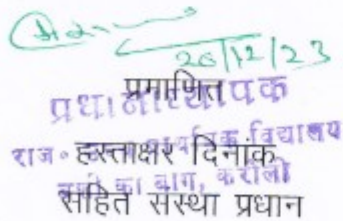 20/12/23
प्रमाणित
प्रधानाध्यापक
राज॰ विद्यालय
हस्ताक्षर दिनांक
का बाग, करौली
सहित संस्था प्रधान